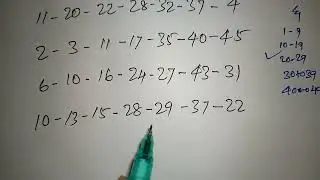 11-20-22-28-32-37-4
2-3-11-17-35-40-45
6-10-16-24-27-43-31
10-13-15-28-29-37-22
1-9
10-19
✓20-29
30+039